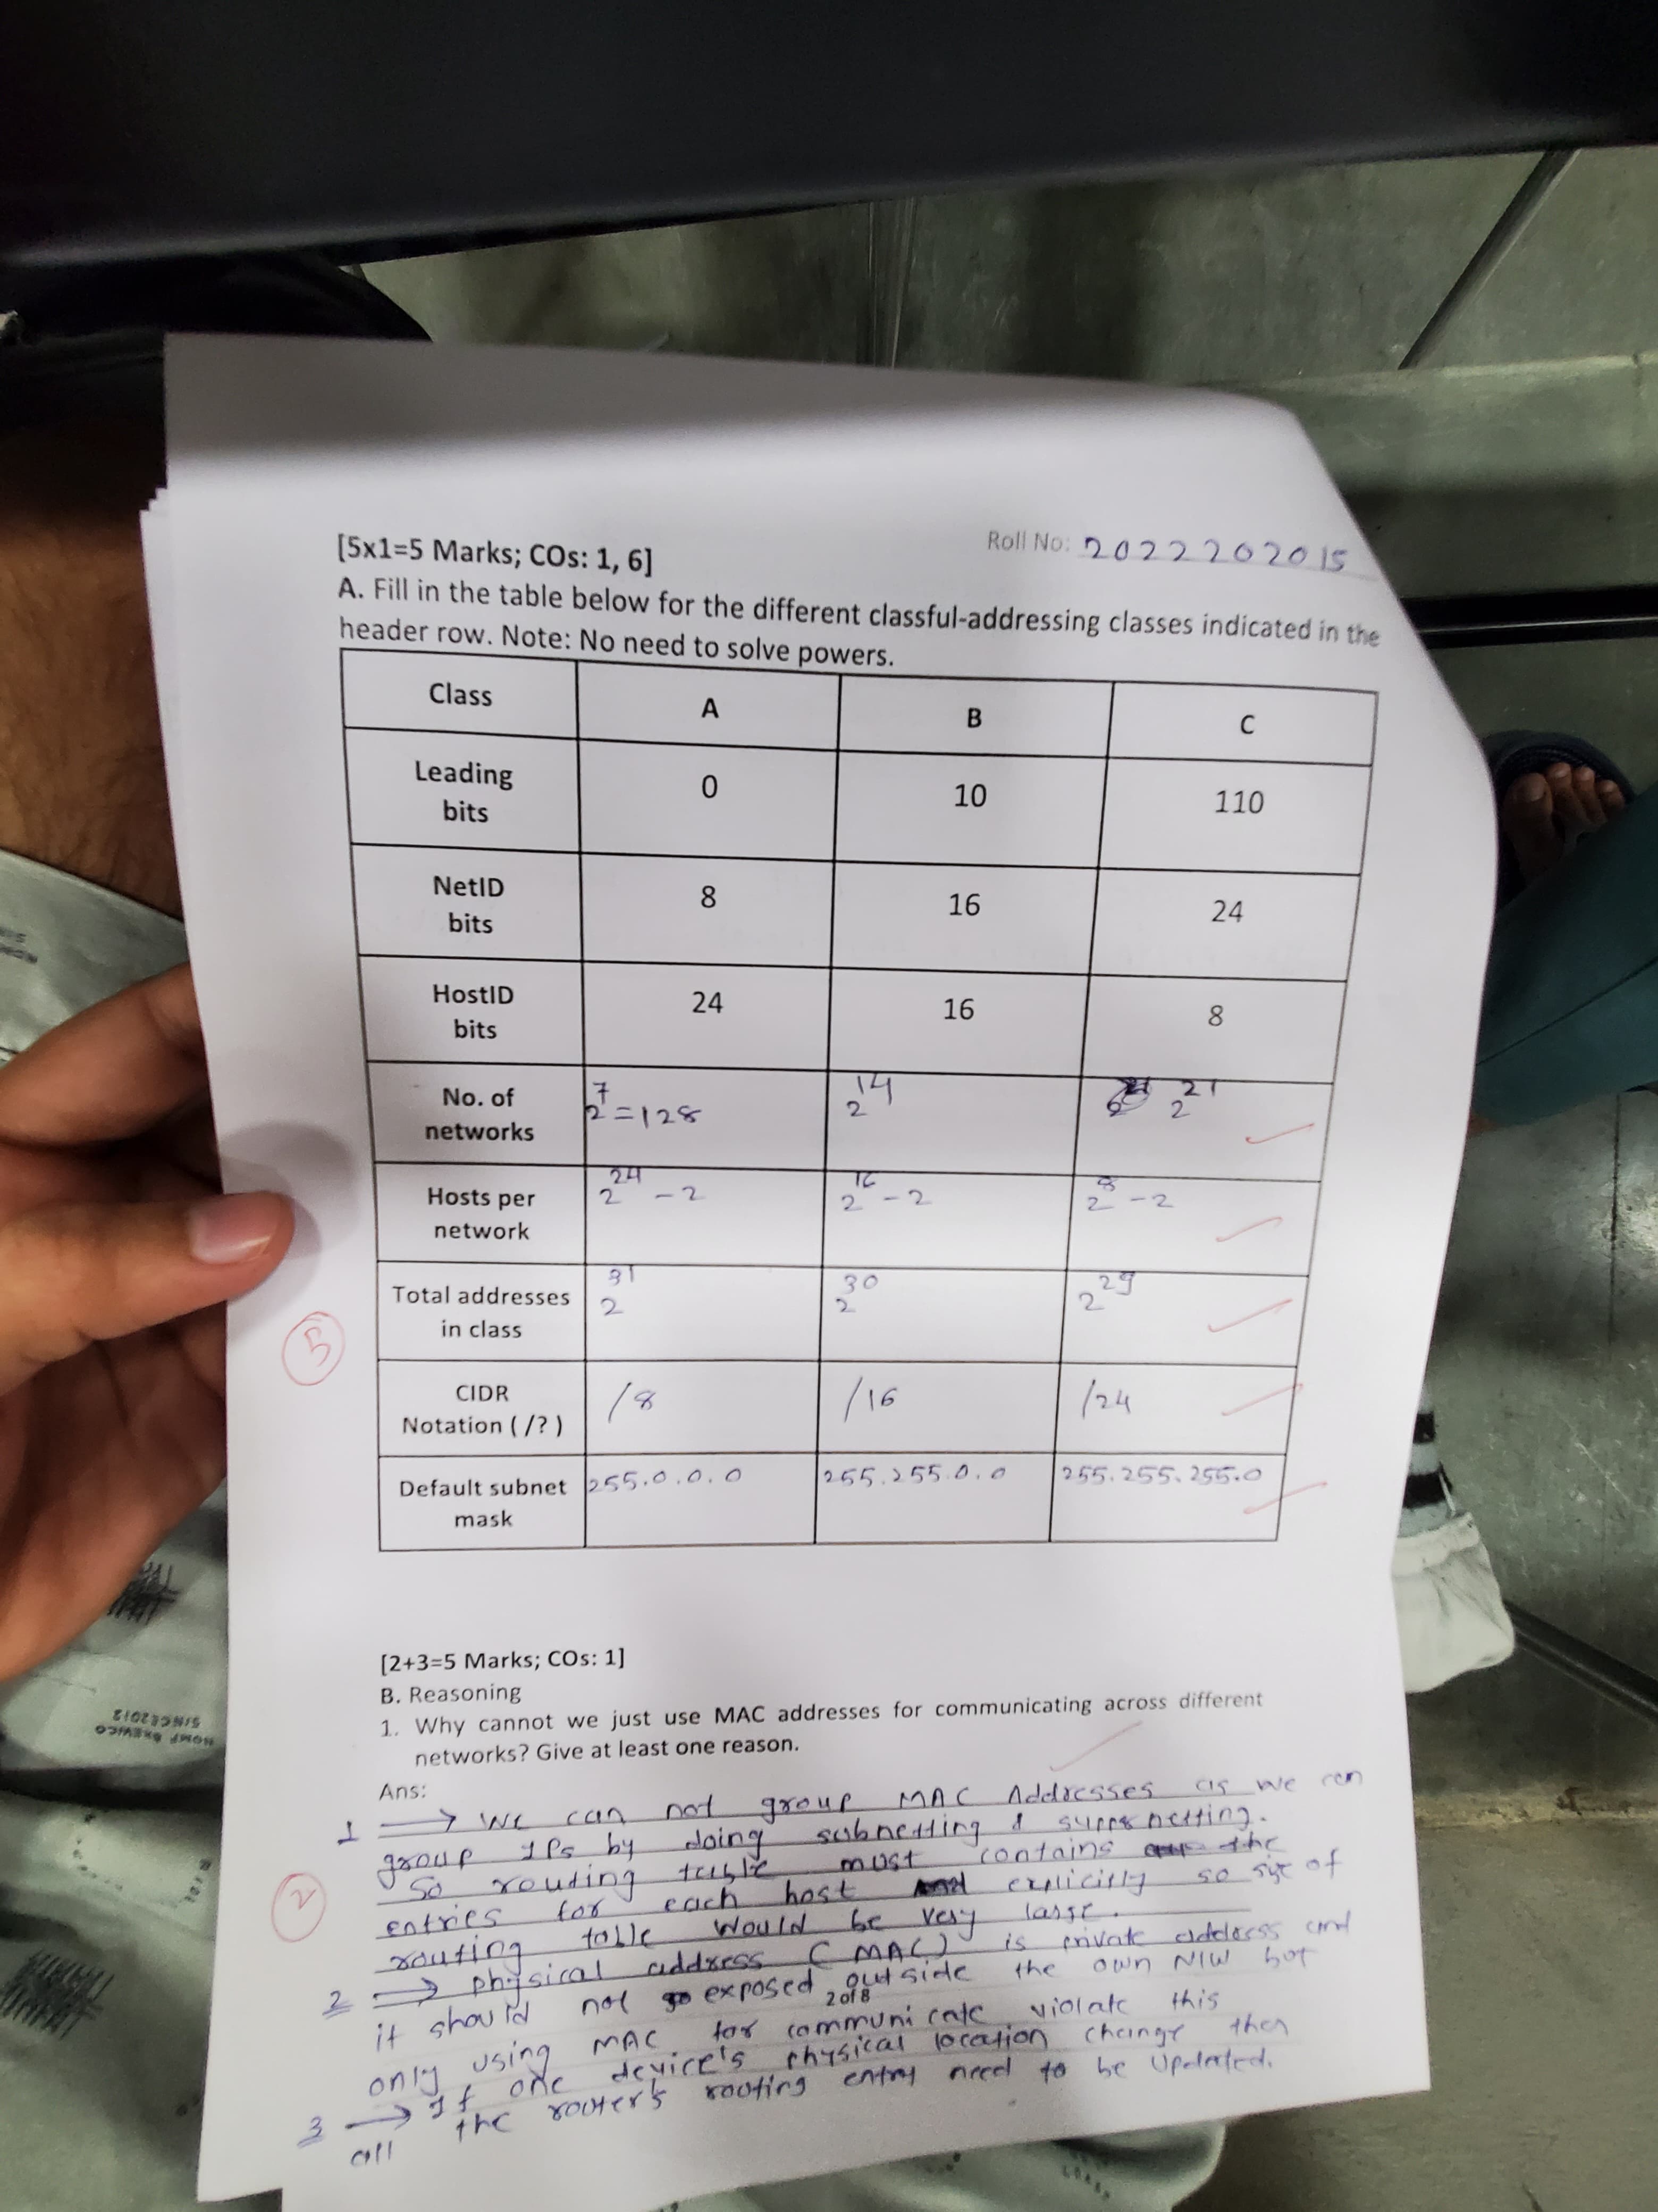 [5x1=5 Marks; COs: 1, 6]
Roll No: 2022202015
A. Fill in the table below for the different classful-addressing classes indicated in the
header row. Note: No need to solve powers.
Class A B C
Leading bits 0 10 110
NetID bits 8 16 24
HostID bits 24 16 8
No. of networks 2^7 = 128 2^14 2^21
Hosts per network 2^24 - 2 2^16 - 2 2^8 - 2
Total addresses in class 2^31 2^30 2^29
5
CIDR Notation ( /? ) /8 /16 /24
Default subnet mask 255.0.0.0 255.255.0.0 255.255.255.0
[2+3=5 Marks; COs: 1]
B. Reasoning
1. Why cannot we just use MAC addresses for communicating across different
networks? Give at least one reason.
Ans:
1 → We can not group MAC Addresses as we can
group IPs by doing subnetting & supernetting.
So routing table must contains the
2
entries for each host explicitly so size of
routing table would be very large.
2 → physical address (MAC) is private address and
it should not exposed outside the own N/W but
2 of 8
only using MAC for communicate violate this
3 → If one device's physical location change then
all the router's routing entry need to be updated.
HOME BREWCO
SINCE2012